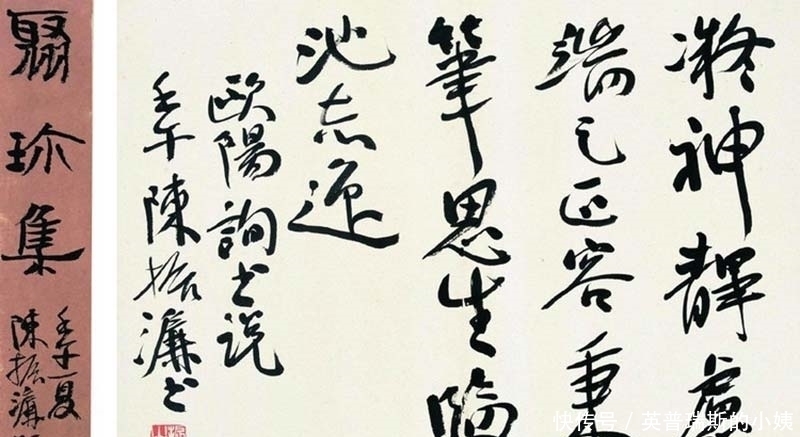 凝神靜慮
端己正容秉
筆思生臨
池志逸
歐陽詢書説
壬午陳振濂書
珍集
壬午夏
陳振濂
快传号 / 英普瑞斯的小姨